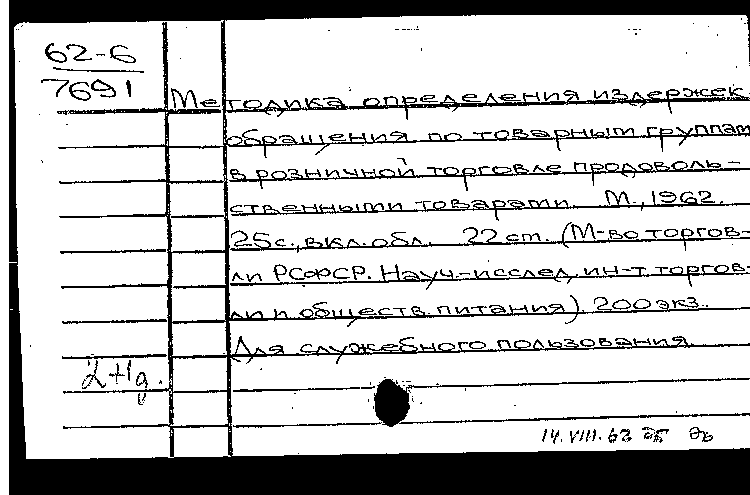 62-6
7691
Методика определения издержек
обращения по товарным группам
в розничной торговле продоволь-
ственными товарами. М., 1962.
25с., вкл. обл. 22 cm. (М-во торгов-
ли РСФСР. Науч.-исслед. ин-т торгов-
ли и обществ. питания). 200 экз.
Для служебного пользования.
14. VIII. 62